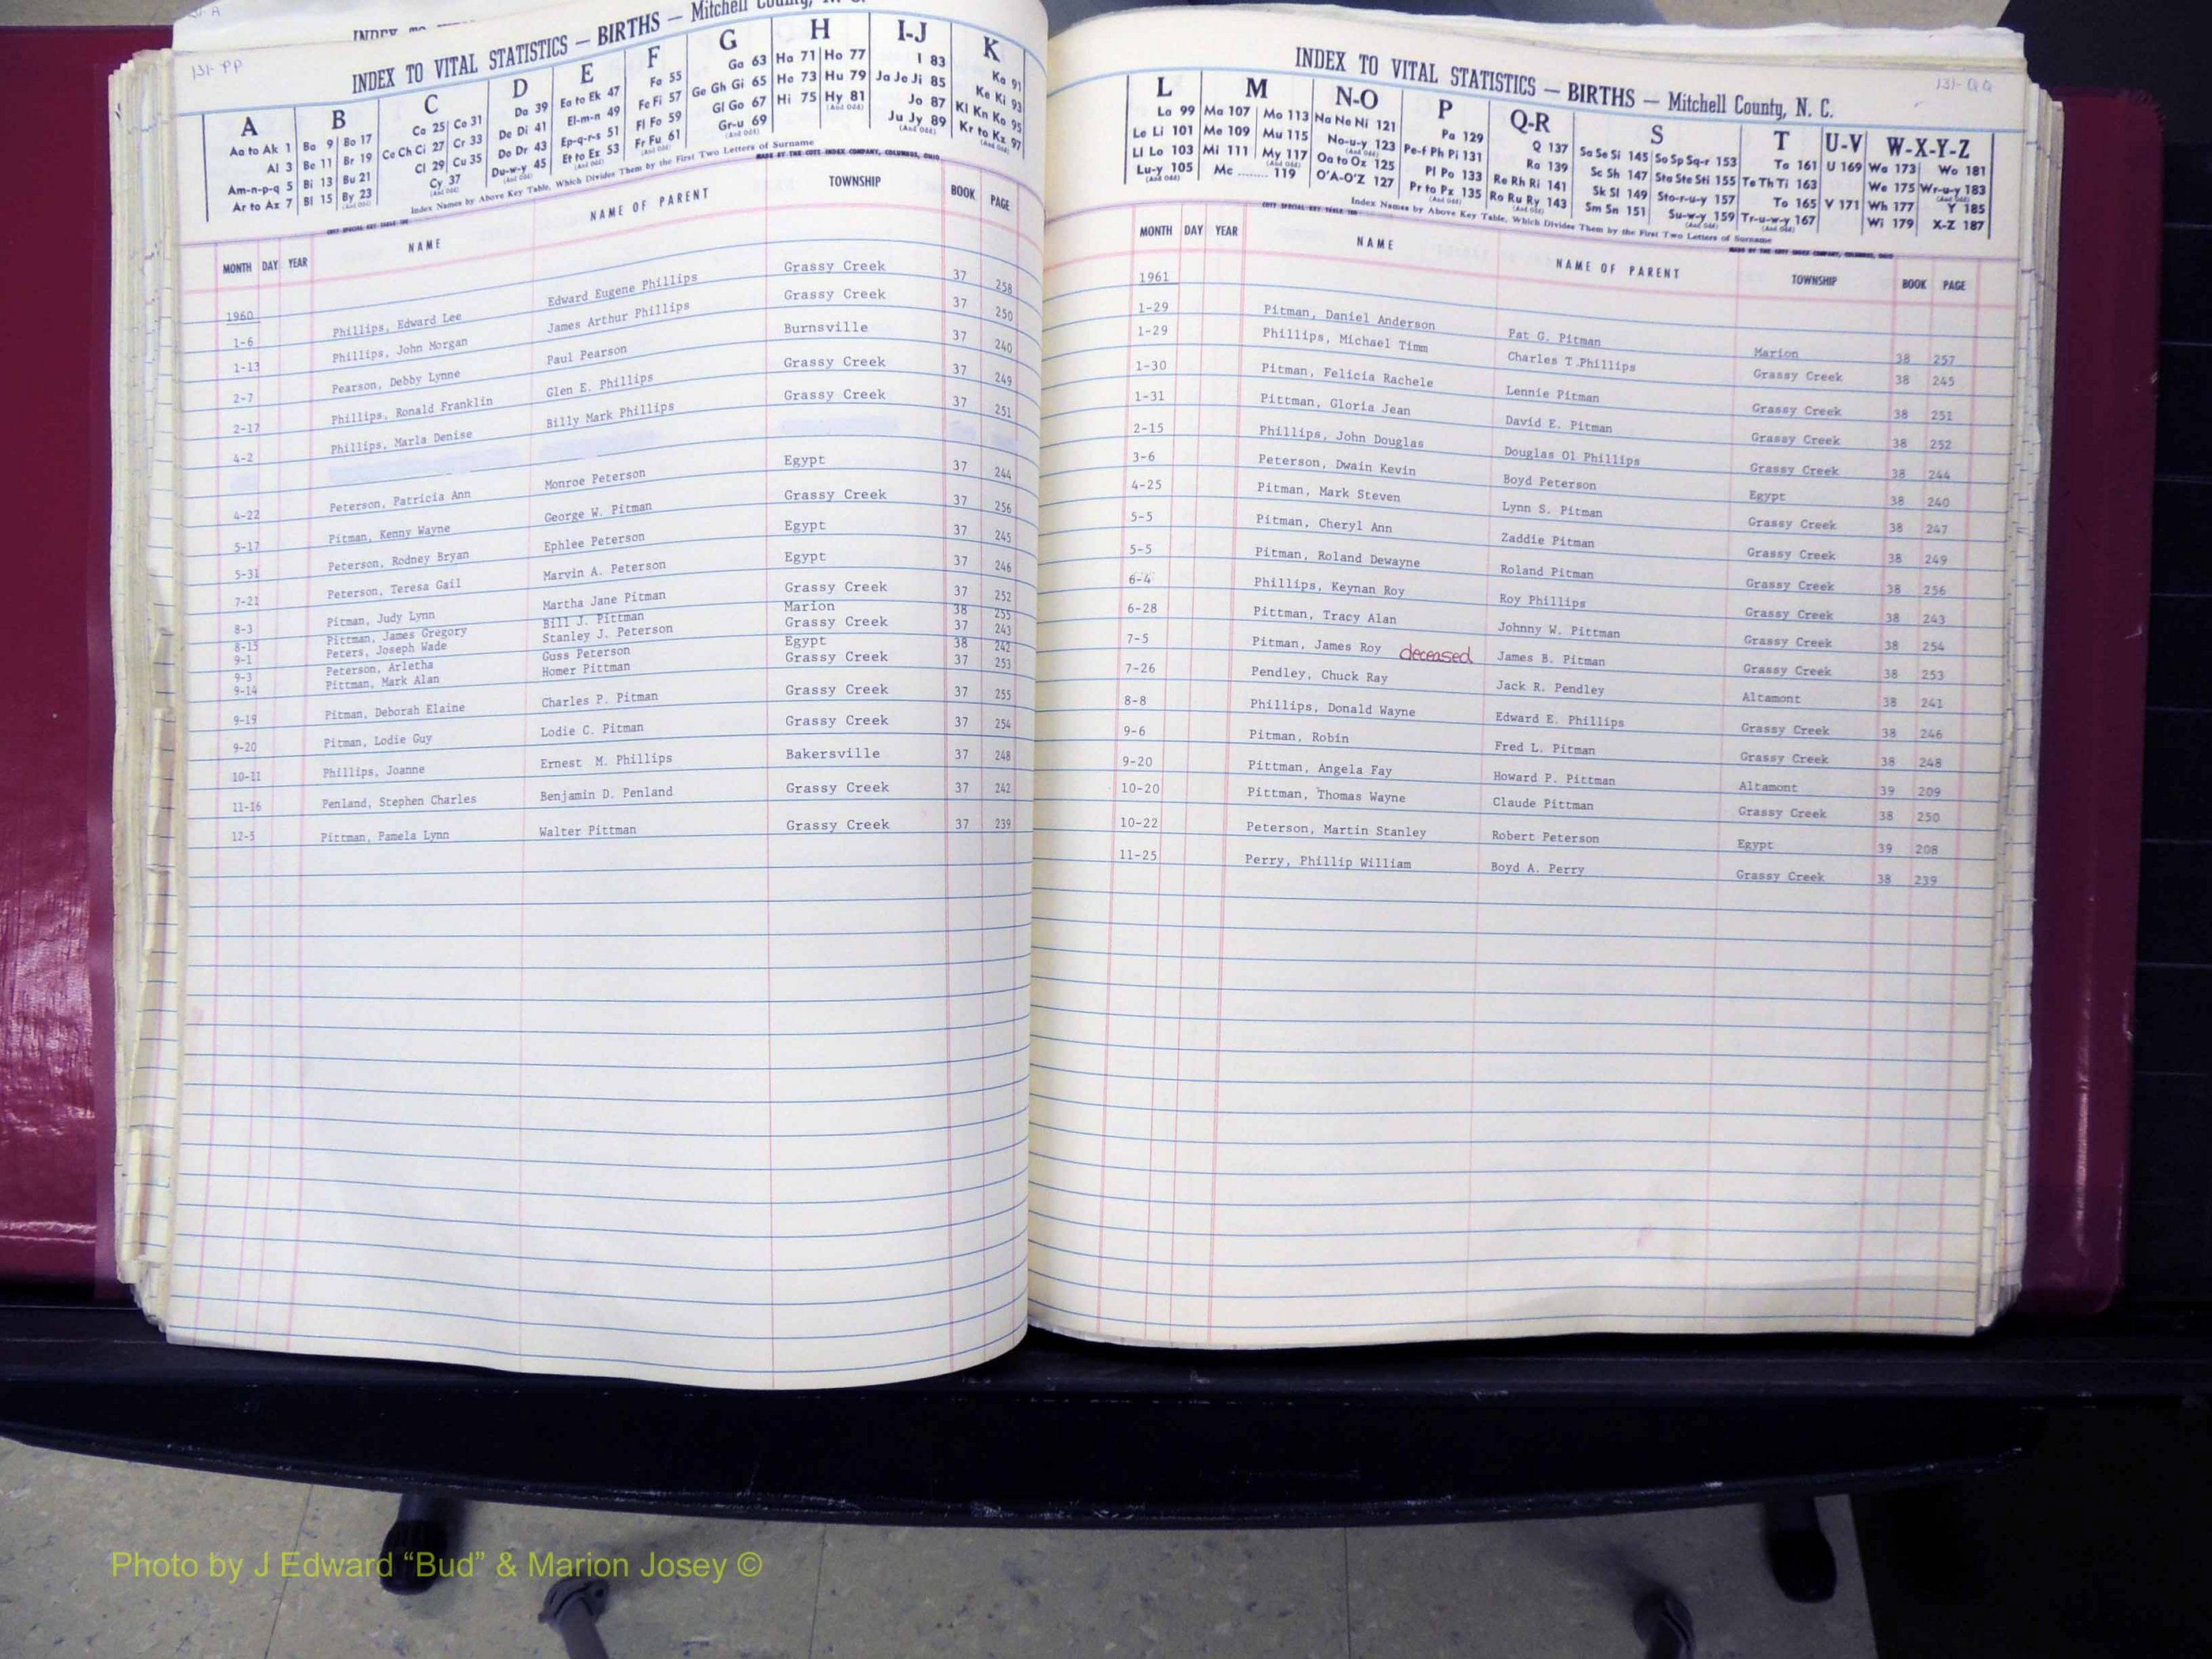 131-PP
INDEX TO VITAL STATISTICS — BIRTHS — Mitchell County, N. C.
A B C D E F G H I-J K
Aa to Ak 1 Ba 9 Bo 17 Ca 25 Co 31 Da 39 Ea to Ek 47 Fa 55 Ga 63 Ha 71 Ho 77 I 83 Ka 91
Al 3 Be 11 Br 19 Ce Ch Ci 27 Cr 33 De Di 41 El-m-n 49 Fe Fi 57 Ge Gh Gi 65 He 73 Hu 79 Ja Je Ji 85 Ke Ki 93
Am-n-p-q 5 Bi 13 Bu 21 Cl 29 Cu 35 Do Dr 43 Ep-q-r-s 51 Fl Fo 59 Gl Go 67 Hi 75 Hy 81 Jo 87 Kl Kn Ko 95
Ar to Az 7 Bl 15 By 23 Cy 37 Du-w-y 45 Et to Ez 53 Fr Fu 61 Gr-u 69 Ju Jy 89 Kr to Kz 97
Index Names by Above Key Table, Which Divides Them by the First Two Letters of Surname
MADE BY THE COTT INDEX COMPANY, COLUMBUS, OHIO
MONTH DAY YEAR NAME NAME OF PARENT TOWNSHIP BOOK PAGE
1960
1-6 Phillips, Edward Lee Edward Eugene Phillips Grassy Creek 37 258
1-13 Phillips, John Morgan James Arthur Phillips Grassy Creek 37 250
2-7 Pearson, Debby Lynne Paul Pearson Burnsville 37 240
2-17 Phillips, Ronald Franklin Glen E. Phillips Grassy Creek 37 249
4-2 Phillips, Marla Denise Billy Mark Phillips Grassy Creek 37 251
4-22 Peterson, Patricia Ann Monroe Peterson Egypt 37 244
5-17 Pitman, Kenny Wayne George W. Pitman Grassy Creek 37 256
5-31 Peterson, Rodney Bryan Ephlee Peterson Egypt 37 245
7-21 Peterson, Teresa Gail Marvin A. Peterson Egypt 37 246
8-3 Pitman, Judy Lynn Martha Jane Pitman Grassy Creek 37 252
8-15 Pittman, James Gregory Bill J. Pittman Marion 38 255
9-1 Peters, Joseph Wade Stanley J. Peterson Grassy Creek 37 243
9-3 Peterson, Arletha Guss Peterson Egypt 38 242
9-14 Pittman, Mark Alan Homer Pittman Grassy Creek 37 253
9-19 Pitman, Deborah Elaine Charles P. Pitman Grassy Creek 37 255
9-20 Pitman, Lodie Guy Lodie C. Pitman Grassy Creek 37 254
10-11 Phillips, Joanne Ernest M. Phillips Bakersville 37 248
11-16 Penland, Stephen Charles Benjamin D. Penland Grassy Creek 37 242
12-5 Pittman, Pamela Lynn Walter Pittman Grassy Creek 37 239
131-QQ
INDEX TO VITAL STATISTICS — BIRTHS — Mitchell County, N. C.
L M N-O P Q-R S T U-V W-X-Y-Z
La 99 Ma 107 Mo 113 Na Ne Ni 121 Pa 129 Q 137 Sa Se Si 145 So Sp Sq-r 153 Ta 161 U 169 Wa 173 Wo 181
Le Li 101 Me 109 Mu 115 No-u-y 123 Pe-f Ph Pi 131 Ra 139 Sc Sh 147 Sta Ste Sti 155 Te Th Ti 163 We 175 Wr-u-y 183
Ll Lo 103 Mi 111 My 117 Oa to Oz 125 Pl Po 133 Re Rh Ri 141 Sk Sl 149 Sto-r-u-y 157 To 165 V 171 Wh 177 Y 185
Lu-y 105 Mc ........ 119 O'A-O'Z 127 Pr to Pz 135 Ro Ru Ry 143 Sm Sn 151 Su-w-y 159 Tr-u-w-y 167 Wi 179 X-Z 187
Index Names by Above Key Table, Which Divides Them by the First Two Letters of Surname
MADE BY THE COTT INDEX COMPANY, COLUMBUS, OHIO
MONTH DAY YEAR NAME NAME OF PARENT TOWNSHIP BOOK PAGE
1961
1-29 Pitman, Daniel Anderson Pat G. Pitman Marion 38 257
1-29 Phillips, Michael Timm Charles T.Phillips Grassy Creek 38 245
1-30 Pitman, Felicia Rachele Lennie Pitman Grassy Creek 38 251
1-31 Pittman, Gloria Jean David E. Pitman Grassy Creek 38 252
2-15 Phillips, John Douglas Douglas Ol Phillips Grassy Creek 38 244
3-6 Peterson, Dwain Kevin Boyd Peterson Egypt 38 240
4-25 Pitman, Mark Steven Lynn S. Pitman Grassy Creek 38 247
5-5 Pitman, Cheryl Ann Zaddie Pitman Grassy Creek 38 249
5-5 Pitman, Roland Dewayne Roland Pitman Grassy Creek 38 256
6-4 Phillips, Keynan Roy Roy Phillips Grassy Creek 38 243
6-28 Pittman, Tracy Alan Johnny W. Pittman Grassy Creek 38 254
7-5 Pitman, James Roy deceased James B. Pitman Grassy Creek 38 253
7-26 Pendley, Chuck Ray Jack R. Pendley Altamont 38 241
8-8 Phillips, Donald Wayne Edward E. Phillips Grassy Creek 38 246
9-6 Pitman, Robin Fred L. Pitman Grassy Creek 38 248
9-20 Pittman, Angela Fay Howard P. Pittman Altamont 39 209
10-20 Pittman, Thomas Wayne Claude Pittman Grassy Creek 38 250
10-22 Peterson, Martin Stanley Robert Peterson Egypt 39 208
11-25 Perry, Phillip William Boyd A. Perry Grassy Creek 38 239
Photo by J Edward “Bud” & Marion Josey ©